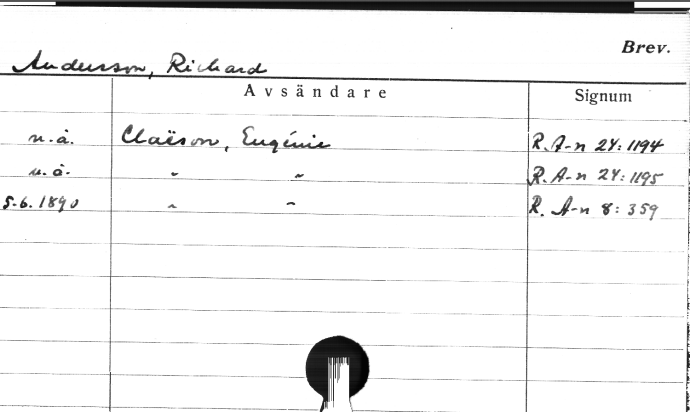 Brev.
Andersson, Richard
Avsändare Signum
u.å. Claëson, Eugénie R. A-n 24:1194
u.å. " " R. A-n 24:1195
5.6.1890 " " R. A-n 8:359